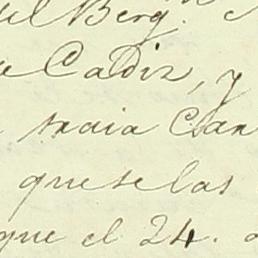 del Berg.
e Cadiz, y
traia Can
que se las
que el 24.